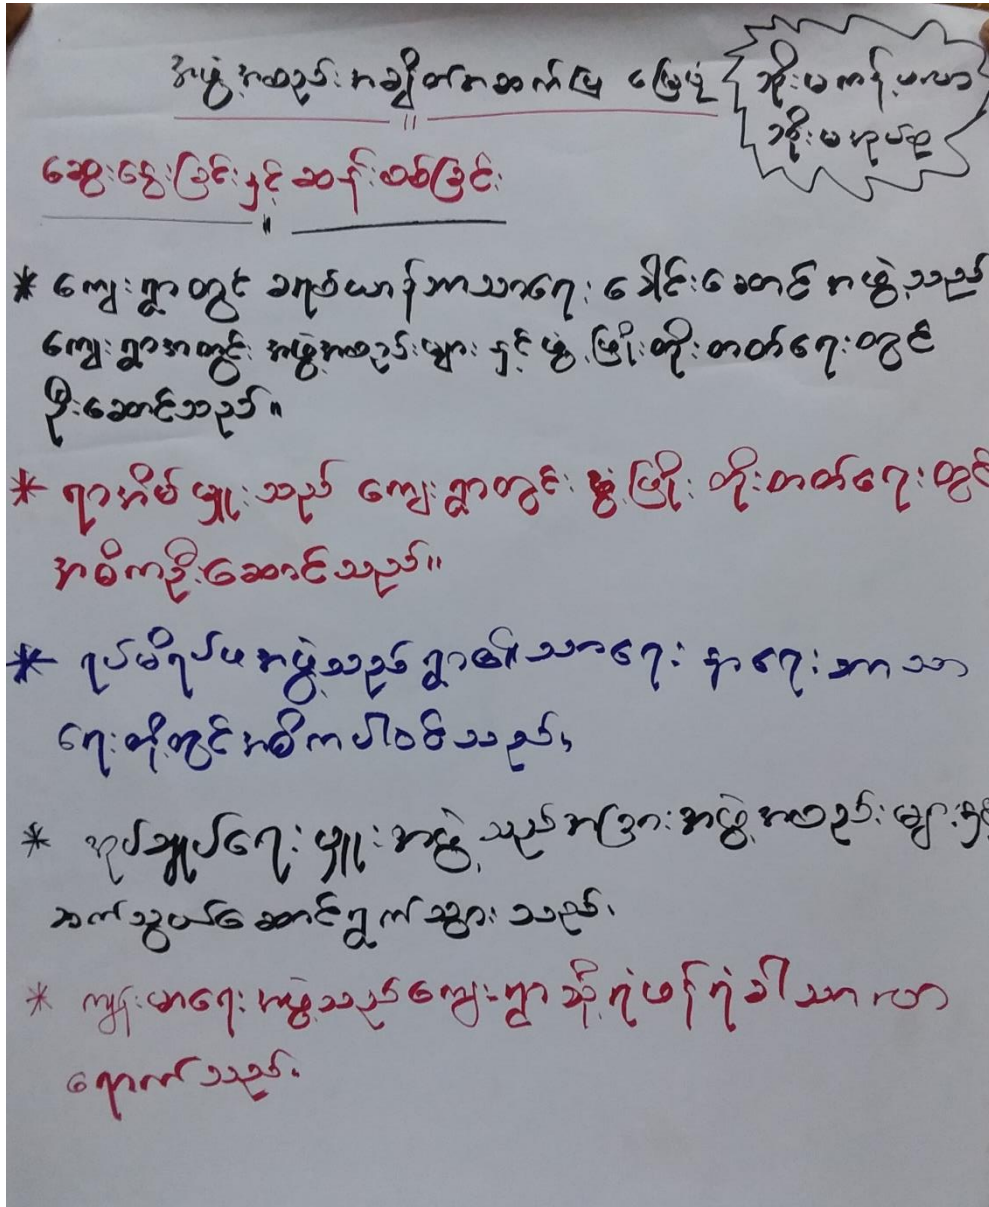 အဖွဲ့အစည်းအချိတ်အဆက်ပြ မြေပုံ
အိုးမကန့်မလာ
အိုးမအုပ်စု
ဆွေးနွေးခြင်းနှင့် ဆန်းစစ်ခြင်း
* ကျေးရွာတွင် ခရစ်ယာန်ဘာသာရေး ခေါင်းဆောင် အဖွဲ့သည်
ကျေးရွာအတွင်း အဖွဲ့အစည်းများ နှင့် ဖွံ့ဖြိုးတိုးတတ်ရေးတွင်
ဦးဆောင်သည်။
* ရာအိမ်မှူးသည် ကျေးရွာတွင်း ဖွံ့ဖြိုး တိုးတတ်ရေးတွင်
အဓိကဦးဆောင်သည်။
* ရပ်မိရပ်ဖအဖွဲ့သည် ရွာ၏ သာရေး နာရေး ဘာသာ
ရေးတို့တွင် အဓိကပါဝင်သည်၊
* အုပ်ချုပ်ရေးမှူးအဖွဲ့သည် အခြားအဖွဲ့အစည်းများနှင့်
ဆက်သွယ်ဆောင်ရွက်သွားသည်၊
* ကျန်းမာရေးအဖွဲ့သည် ကျေးရွာသို့ ရံဖန်ရံခါသာ လာ
ရောက်သည်၊